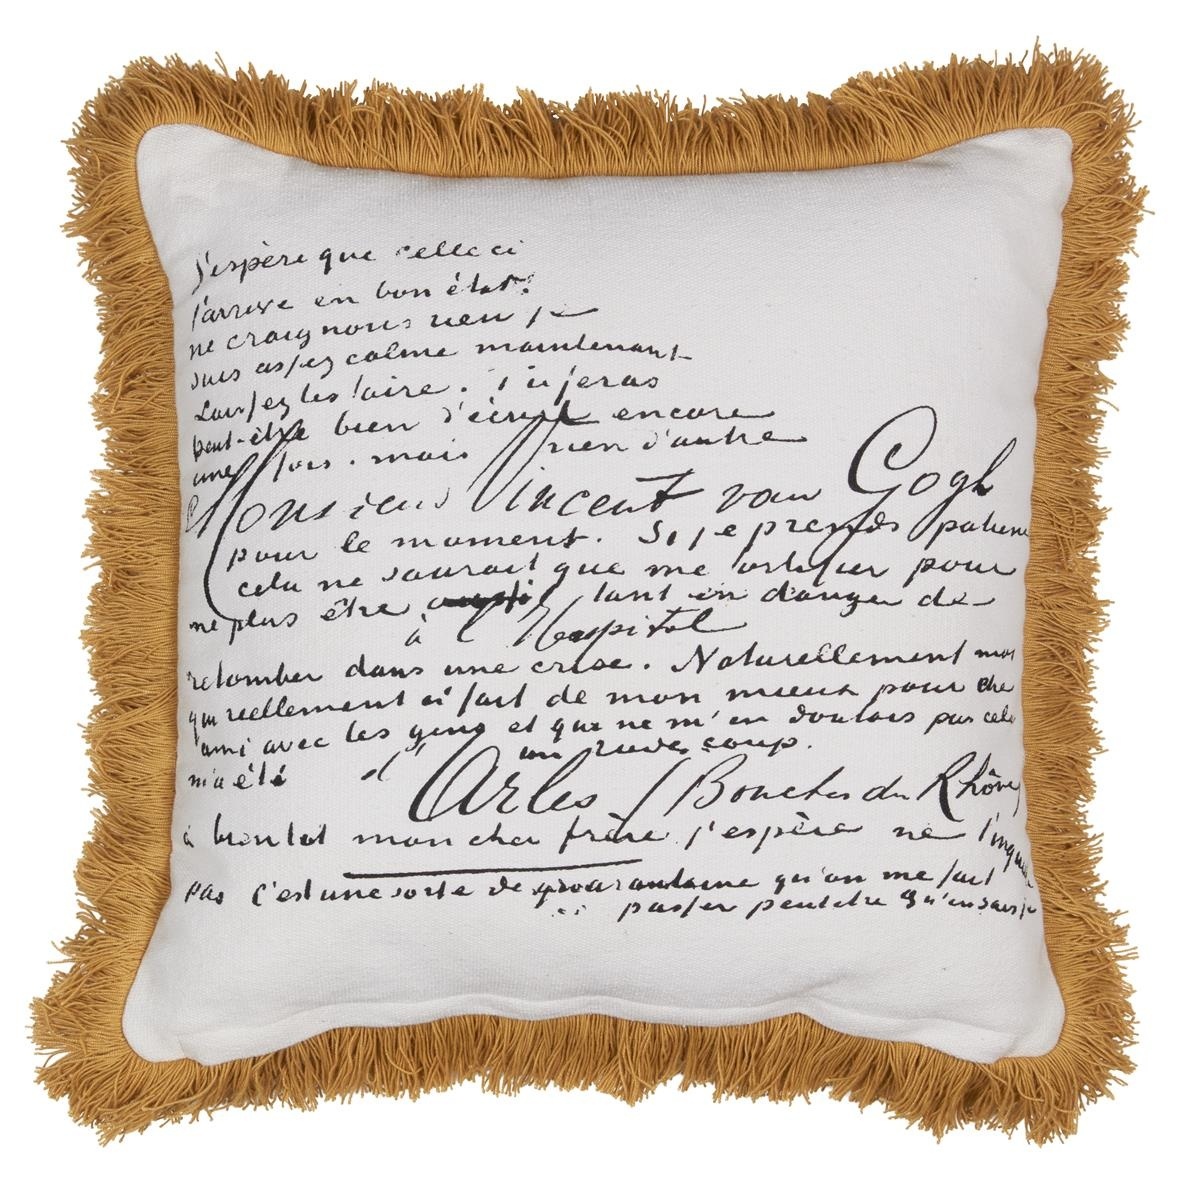 j'espère que celle ci
t'arrive en bon état.
ne craignons rien je
suis assez calme maintenant
Laissez les faire. Tu feras
peut-être bien d'écrire encore
une fois. mais rien d'autre
Monsieur Vincent van Gogh
pour le moment. Si je prends patience
cela ne saurait que me fortifier pour
ne plus être tant en danger de
à l'Hospitol
retomber dans une crise. Naturellement moi
qui reellement ai fait de mon mieux pour être
ami avec les gens et qui ne m'en doutais pas cela
m'a été un rude coup.
d'Arles / Bouches du Rhône
à bientot mon cher frère j'espère ne
pas C'est une sorte de quarantaine qu'on me fait
passer peutêtre qu'en sais je